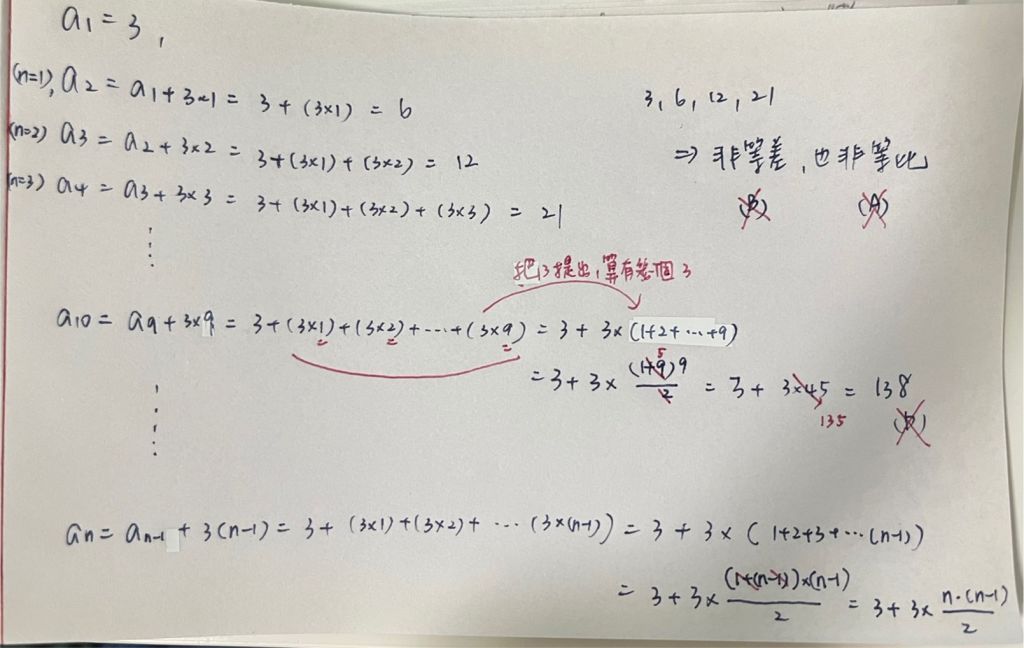 a1 = 3 ,
(n=1), a2 = a1 + 3×1 = 3 + (3×1) = 6
(n=2) a3 = a2 + 3×2 = 3+(3×1)+(3×2) = 12
(n=3) a4 = a3 + 3×3 = 3+(3×1)+(3×2)+(3×3) = 21
3, 6, 12, 21
⇒ 非等差, 也非等比
(B) (A)
把3提出, 算有幾個3
a10 = a9 + 3×9 = 3+(3×1)+(3×2)+…+(3×9) = 3 + 3×(1+2+…+9)
= 3 + 3× (1+9)9/2 = 3 + 3×45 = 138
5
135
(D)
an = an-1 + 3(n-1) = 3 + (3×1)+(3×2)+ … (3×(n-1)) = 3 + 3 × (1+2+3+…(n-1))
= 3 + 3× (1+(n-1))×(n-1)/2 = 3 + 3× n·(n-1)/2